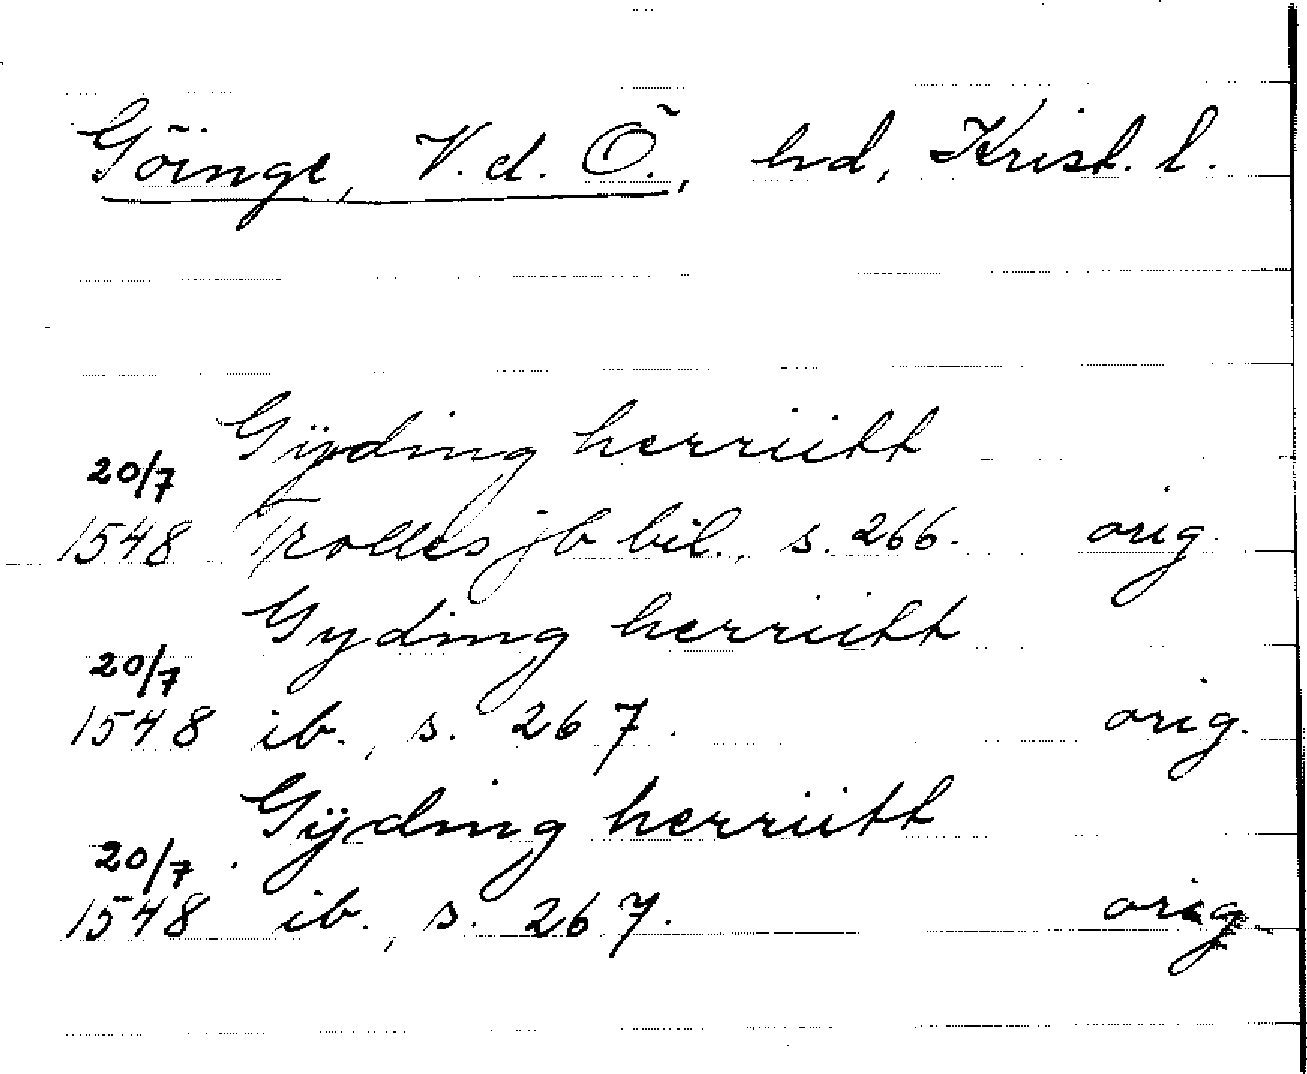 Göinge, V. d. Ö., hd, Krist. l.
Gÿding herriitt
20/7
1548 Trolles jb bil., s. 266. orig.
Gyding herriitt
20/7
1548 ib., s. 267. orig.
Gÿding herriitt
20/7
1548 ib., s. 267. orig.